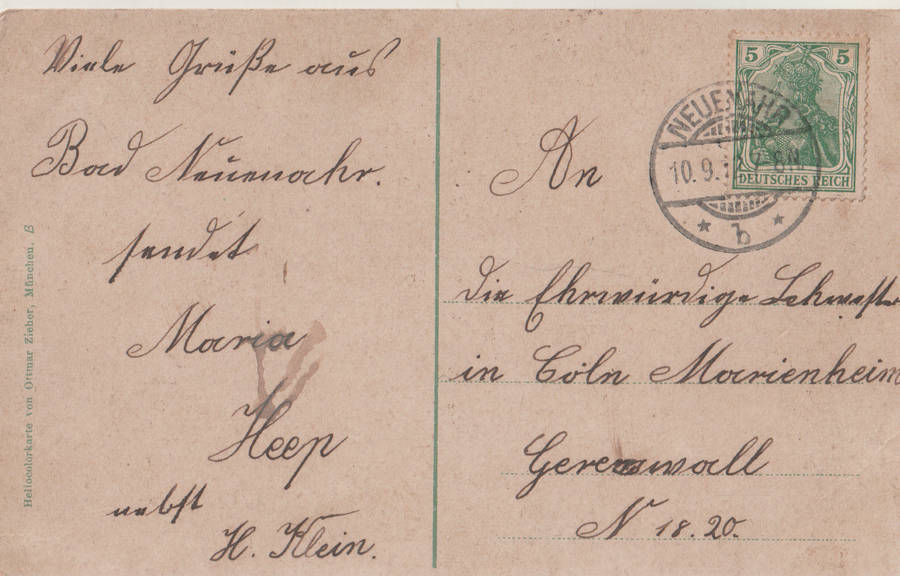 Viele Grüße aus
Bad Neuenahr.
sendet
Maria
Heep
nebst
H. Klein.
Heliocolorkarte von Ottmar Zieher, München. B
5 5
DEUTSCHES REICH
NEUENAHR
10.9.
* b *
An
die Ehrwürdige Schwester
in Cöln Marienheim
Gereonswall
N 18.20.